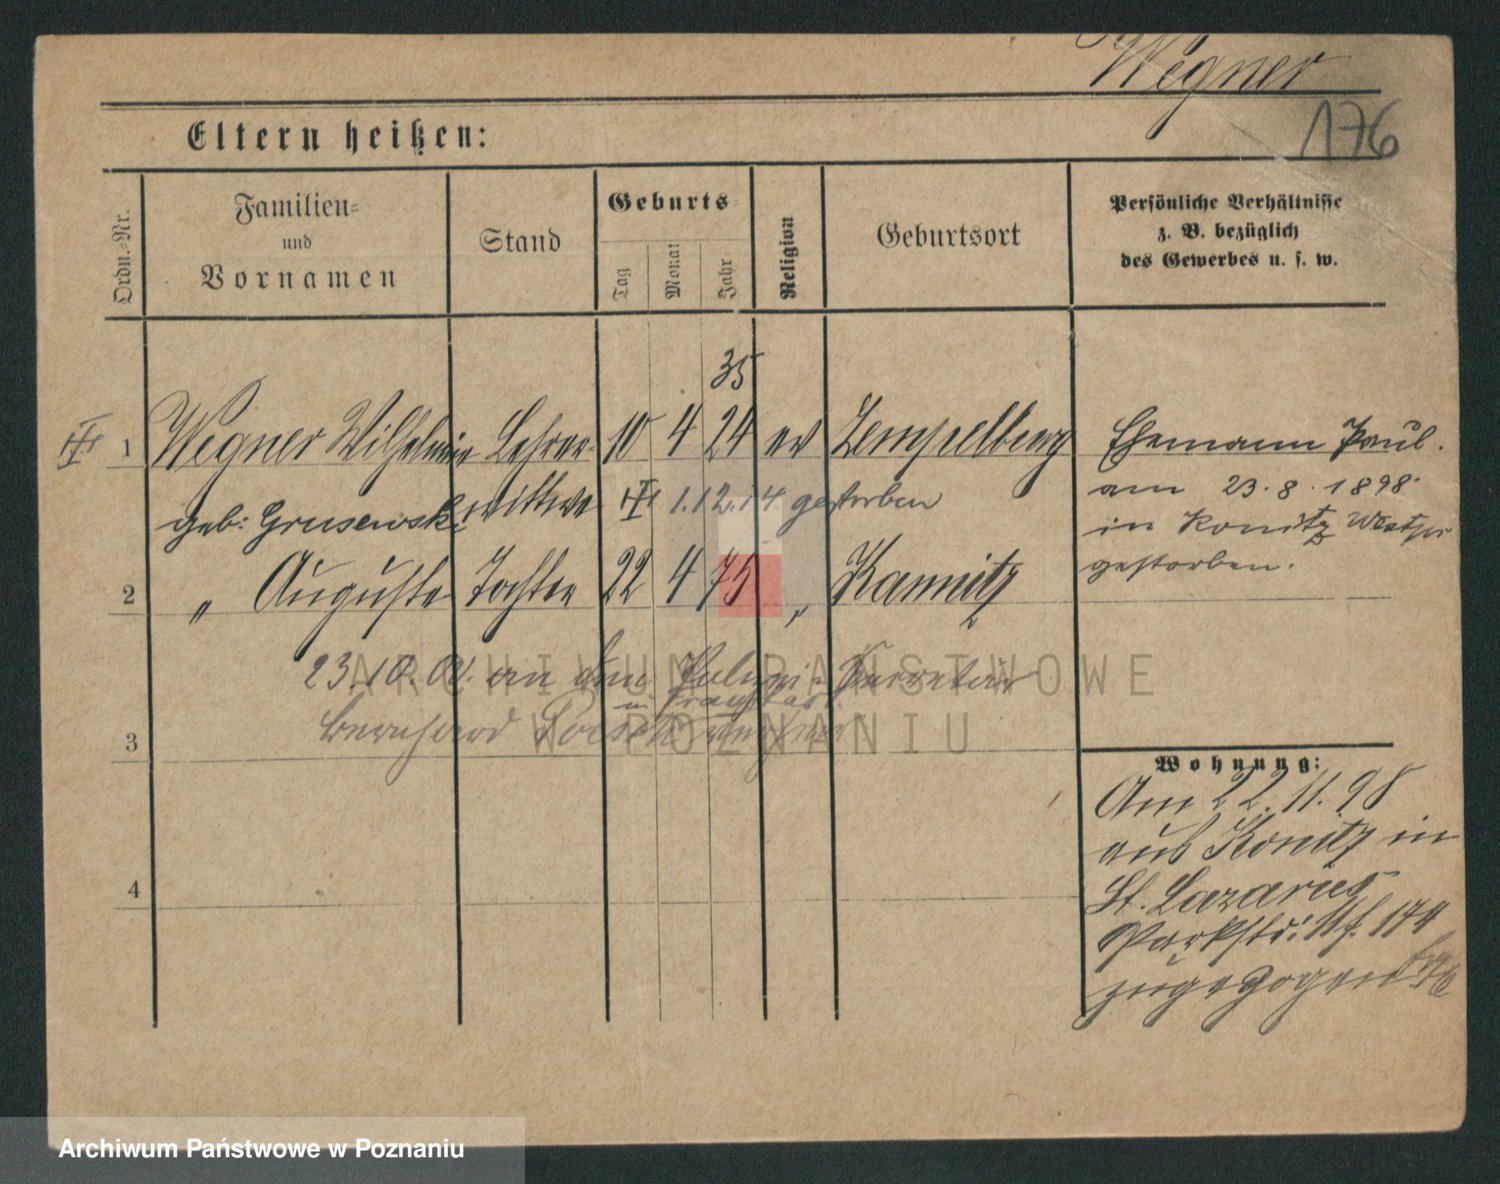 Wegner
176
Eltern heißen:
Ordn.-Nr.
Familien-
und
Vornamen
Stand
Geburts-
Tag
Monat
Jahr
Religion
Geburtsort
Persönliche Verhältnisse
z. B. bezüglich
des Gewerbes u. s. w.
35
1 Wegner Wilhelmine Lehrer- 10 4 24 ev Zempelburg
geb: Grusewski wittwe 1.12.14 gestorben
Ehemann Paul.
am 23.8.1898.
in Konitz Westpr
gestorben.
2 " Auguste Tochter 22 4 75 " Kamnitz
23.10.01. an den Polizei-Secretär
in Fraustadt
Bernhard
3
4
Wohnung:
Am 22.11.98
aus Konitz in
St. Lazarus
Parkstr: 174
zugezogen
ARCHIWUM PAŃSTWOWE
W POZNANIU
Archiwum Państwowe w Poznaniu